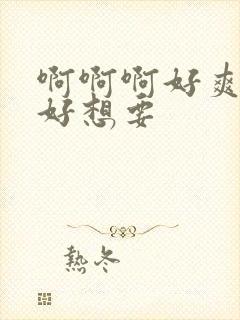 啊啊啊好爽
好想要
热冬